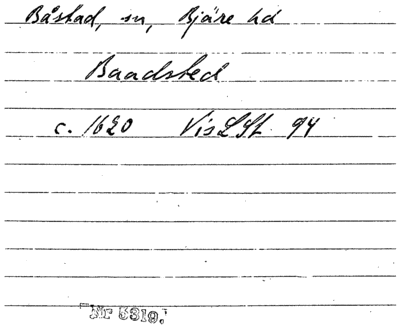 Båstad, sn, Bjäre hd
Baadsted
c. 1620 VisLSt. 94
Nr 5310.